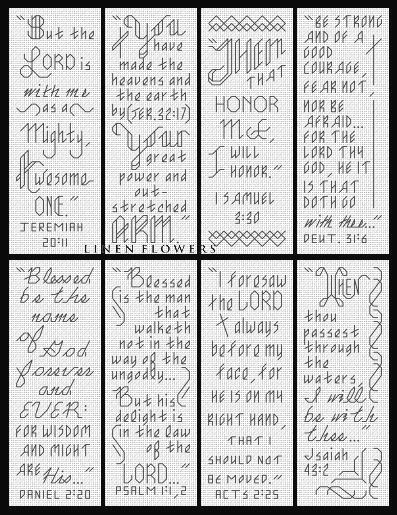 "But the
LORD is
with me
as a
Mighty,
Awesome
ONE."
JEREMIAH
20:11
"You
have
made the
heavens and
the earth
by (JER. 32:17)
Your
great
power and
out-
stretched
ARM."
"THEM
THAT
HONOR
ME,
I WILL
HONOR."
I SAMUEL
2:30
"BE STRONG
AND OF A
GOOD
COURAGE,
FEAR NOT,
NOR BE
AFRAID...
FOR THE
LORD THY
GOD, HE IT
IS THAT
DOTH GO
with thee..."
DEUT. 31:6
LINEN FLOWERS
"Blessed
be the
name
of God
forever
and
EVER:
FOR WISDOM
AND MIGHT
ARE His..."
DANIEL 2:20
"Blessed
is the man
that
walketh
not in the
way of the
ungodly...
But his
delight is
in the law
of the
LORD..."
PSALM 1:1,2
"I foresaw
the LORD
always
before my
face, for
HE IS ON MY
RIGHT HAND,
THAT I
SHOULD NOT
BE MOVED."
ACTS 2:25
"WHEN
thou
passest
through
the
waters,
I will
be with
thee..."
Isaiah
43:2